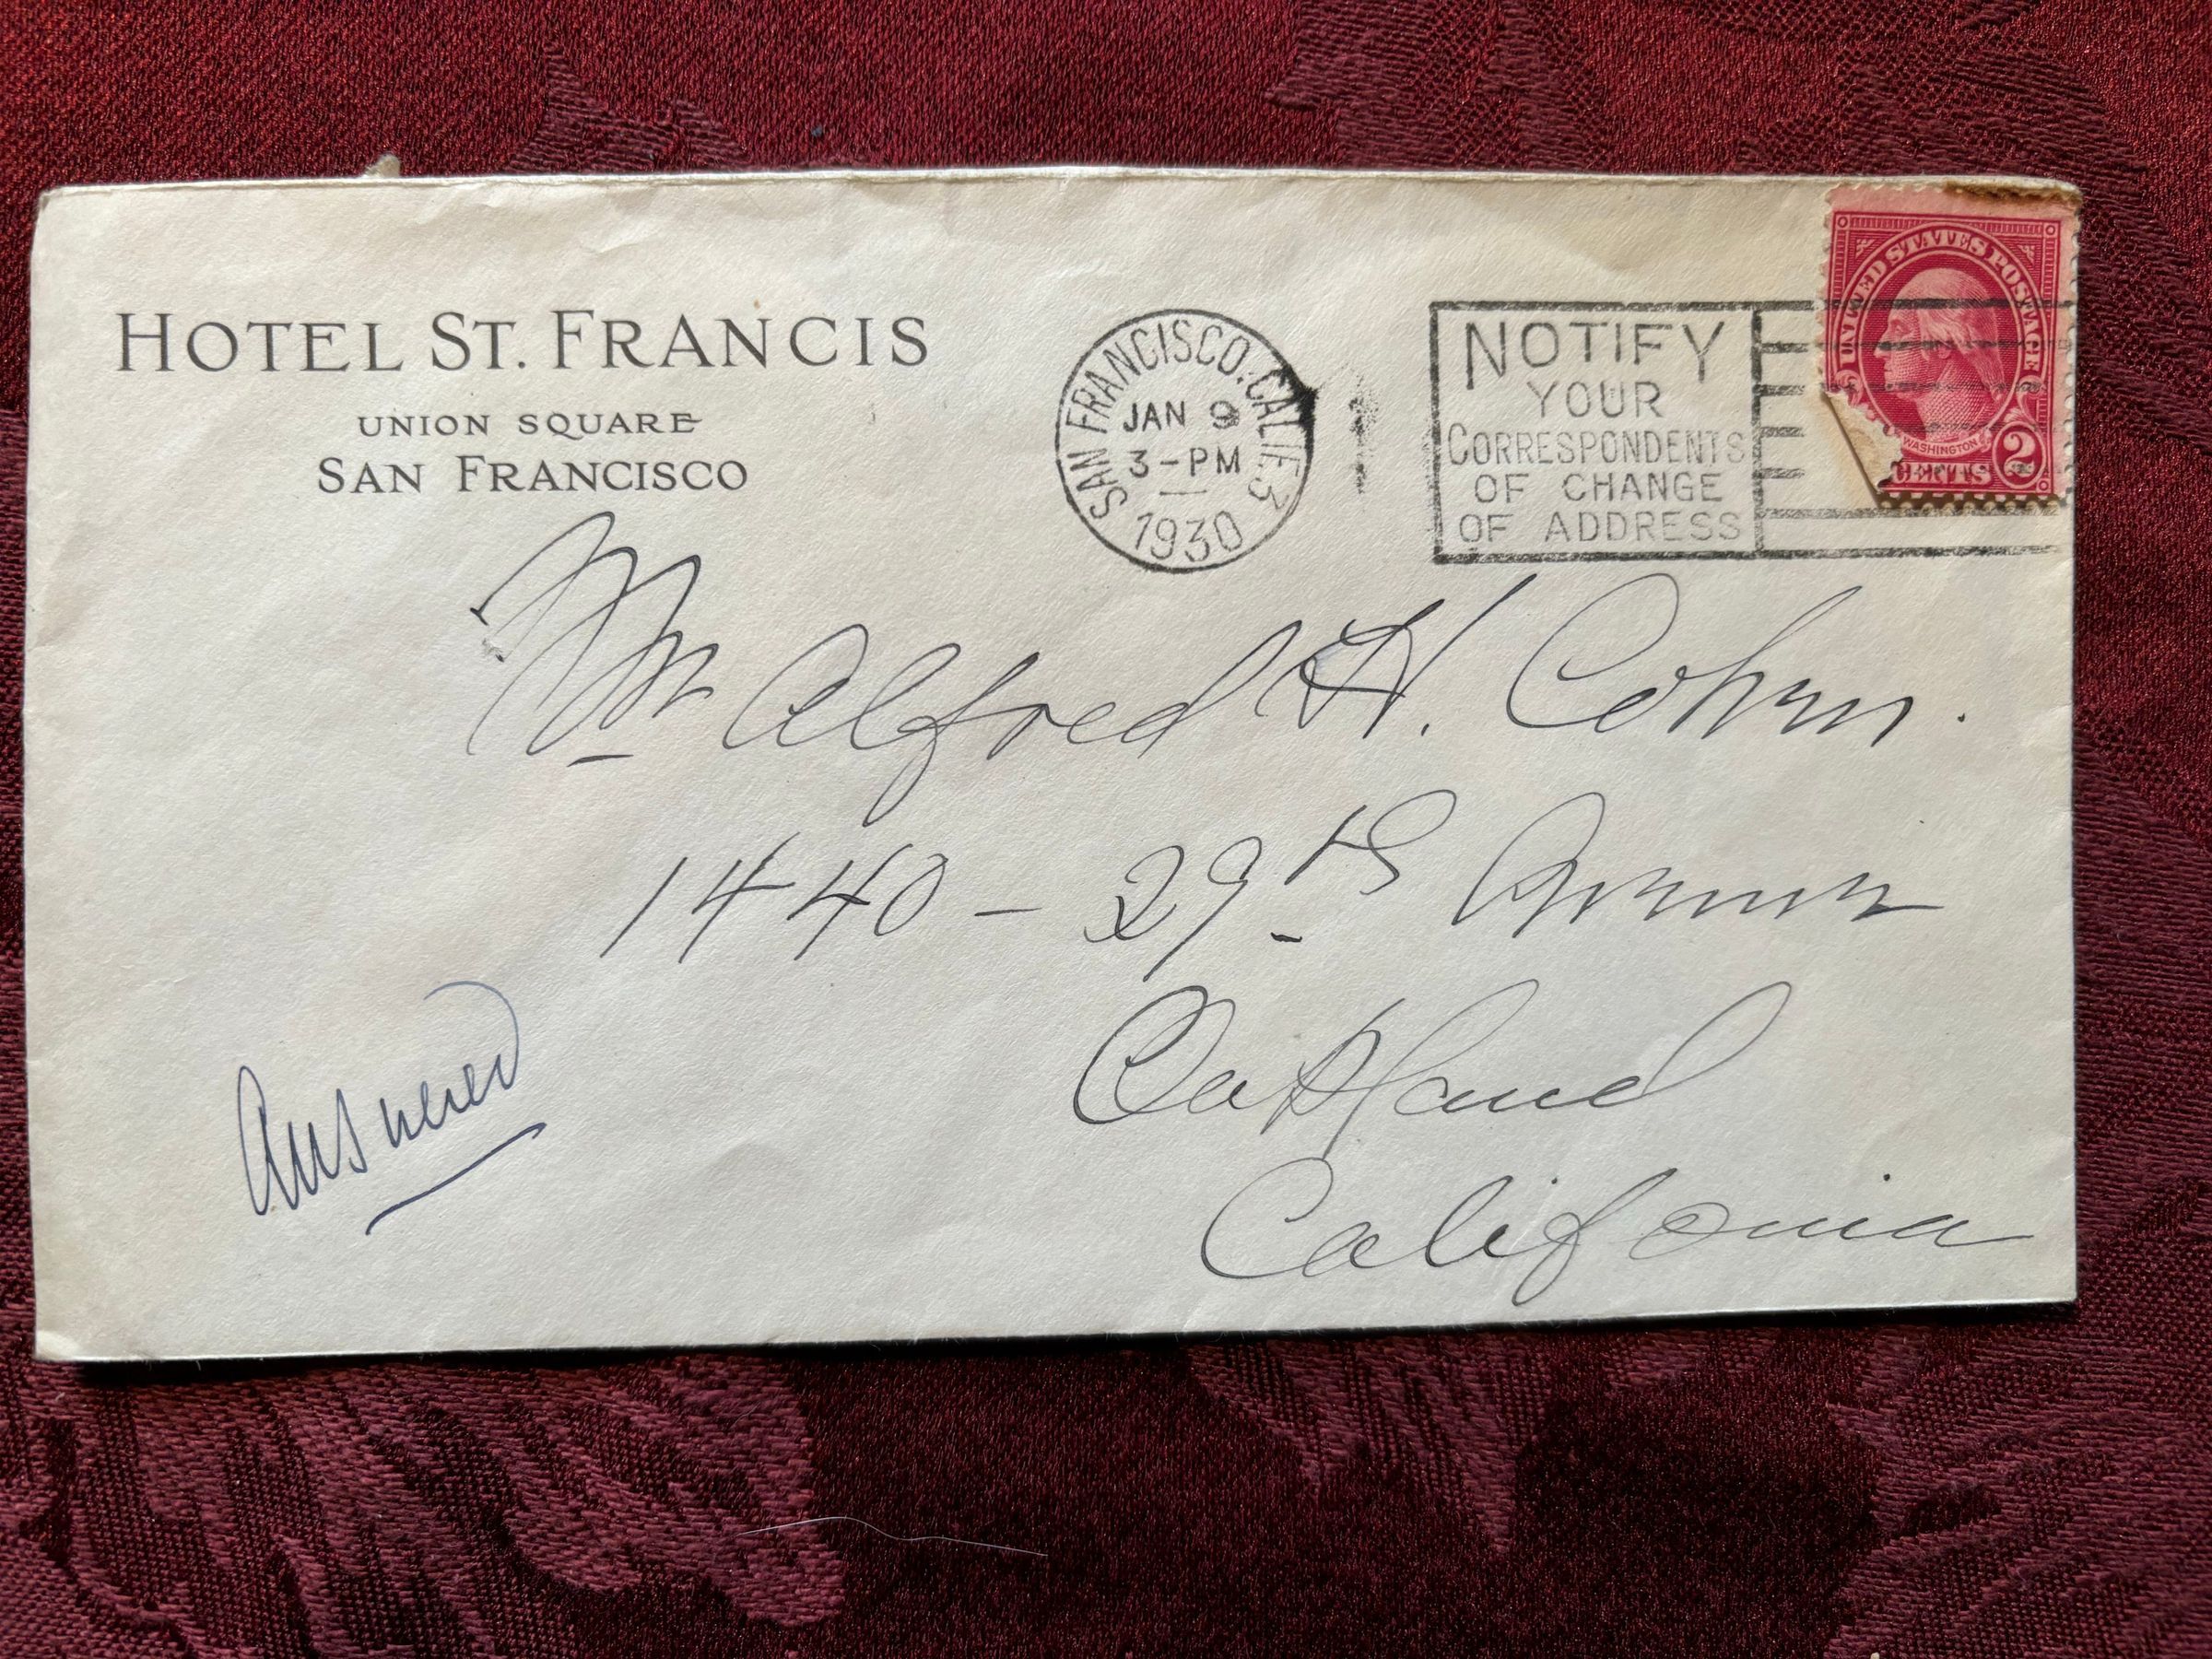 HOTEL ST. FRANCIS
UNION SQUARE
SAN FRANCISCO
SAN FRANCISCO, CALIF. 3
JAN 9
3-PM
1930
NOTIFY
YOUR
CORRESPONDENTS
OF CHANGE
OF ADDRESS
UNITED STATES POSTAGE
WASHINGTON
CENTS 2
Mr Alfred H. Cohen.
1440 - 29th Avenue
Oakland
California
Answered